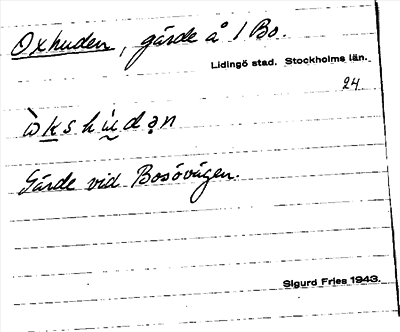 Oxhuden, gärde å 1 Bo.
Lidingö stad. Stockholms län.
24
ò̀kshụ̀dən
Gärde vid Bosövägen.
Sigurd Fries 1943.